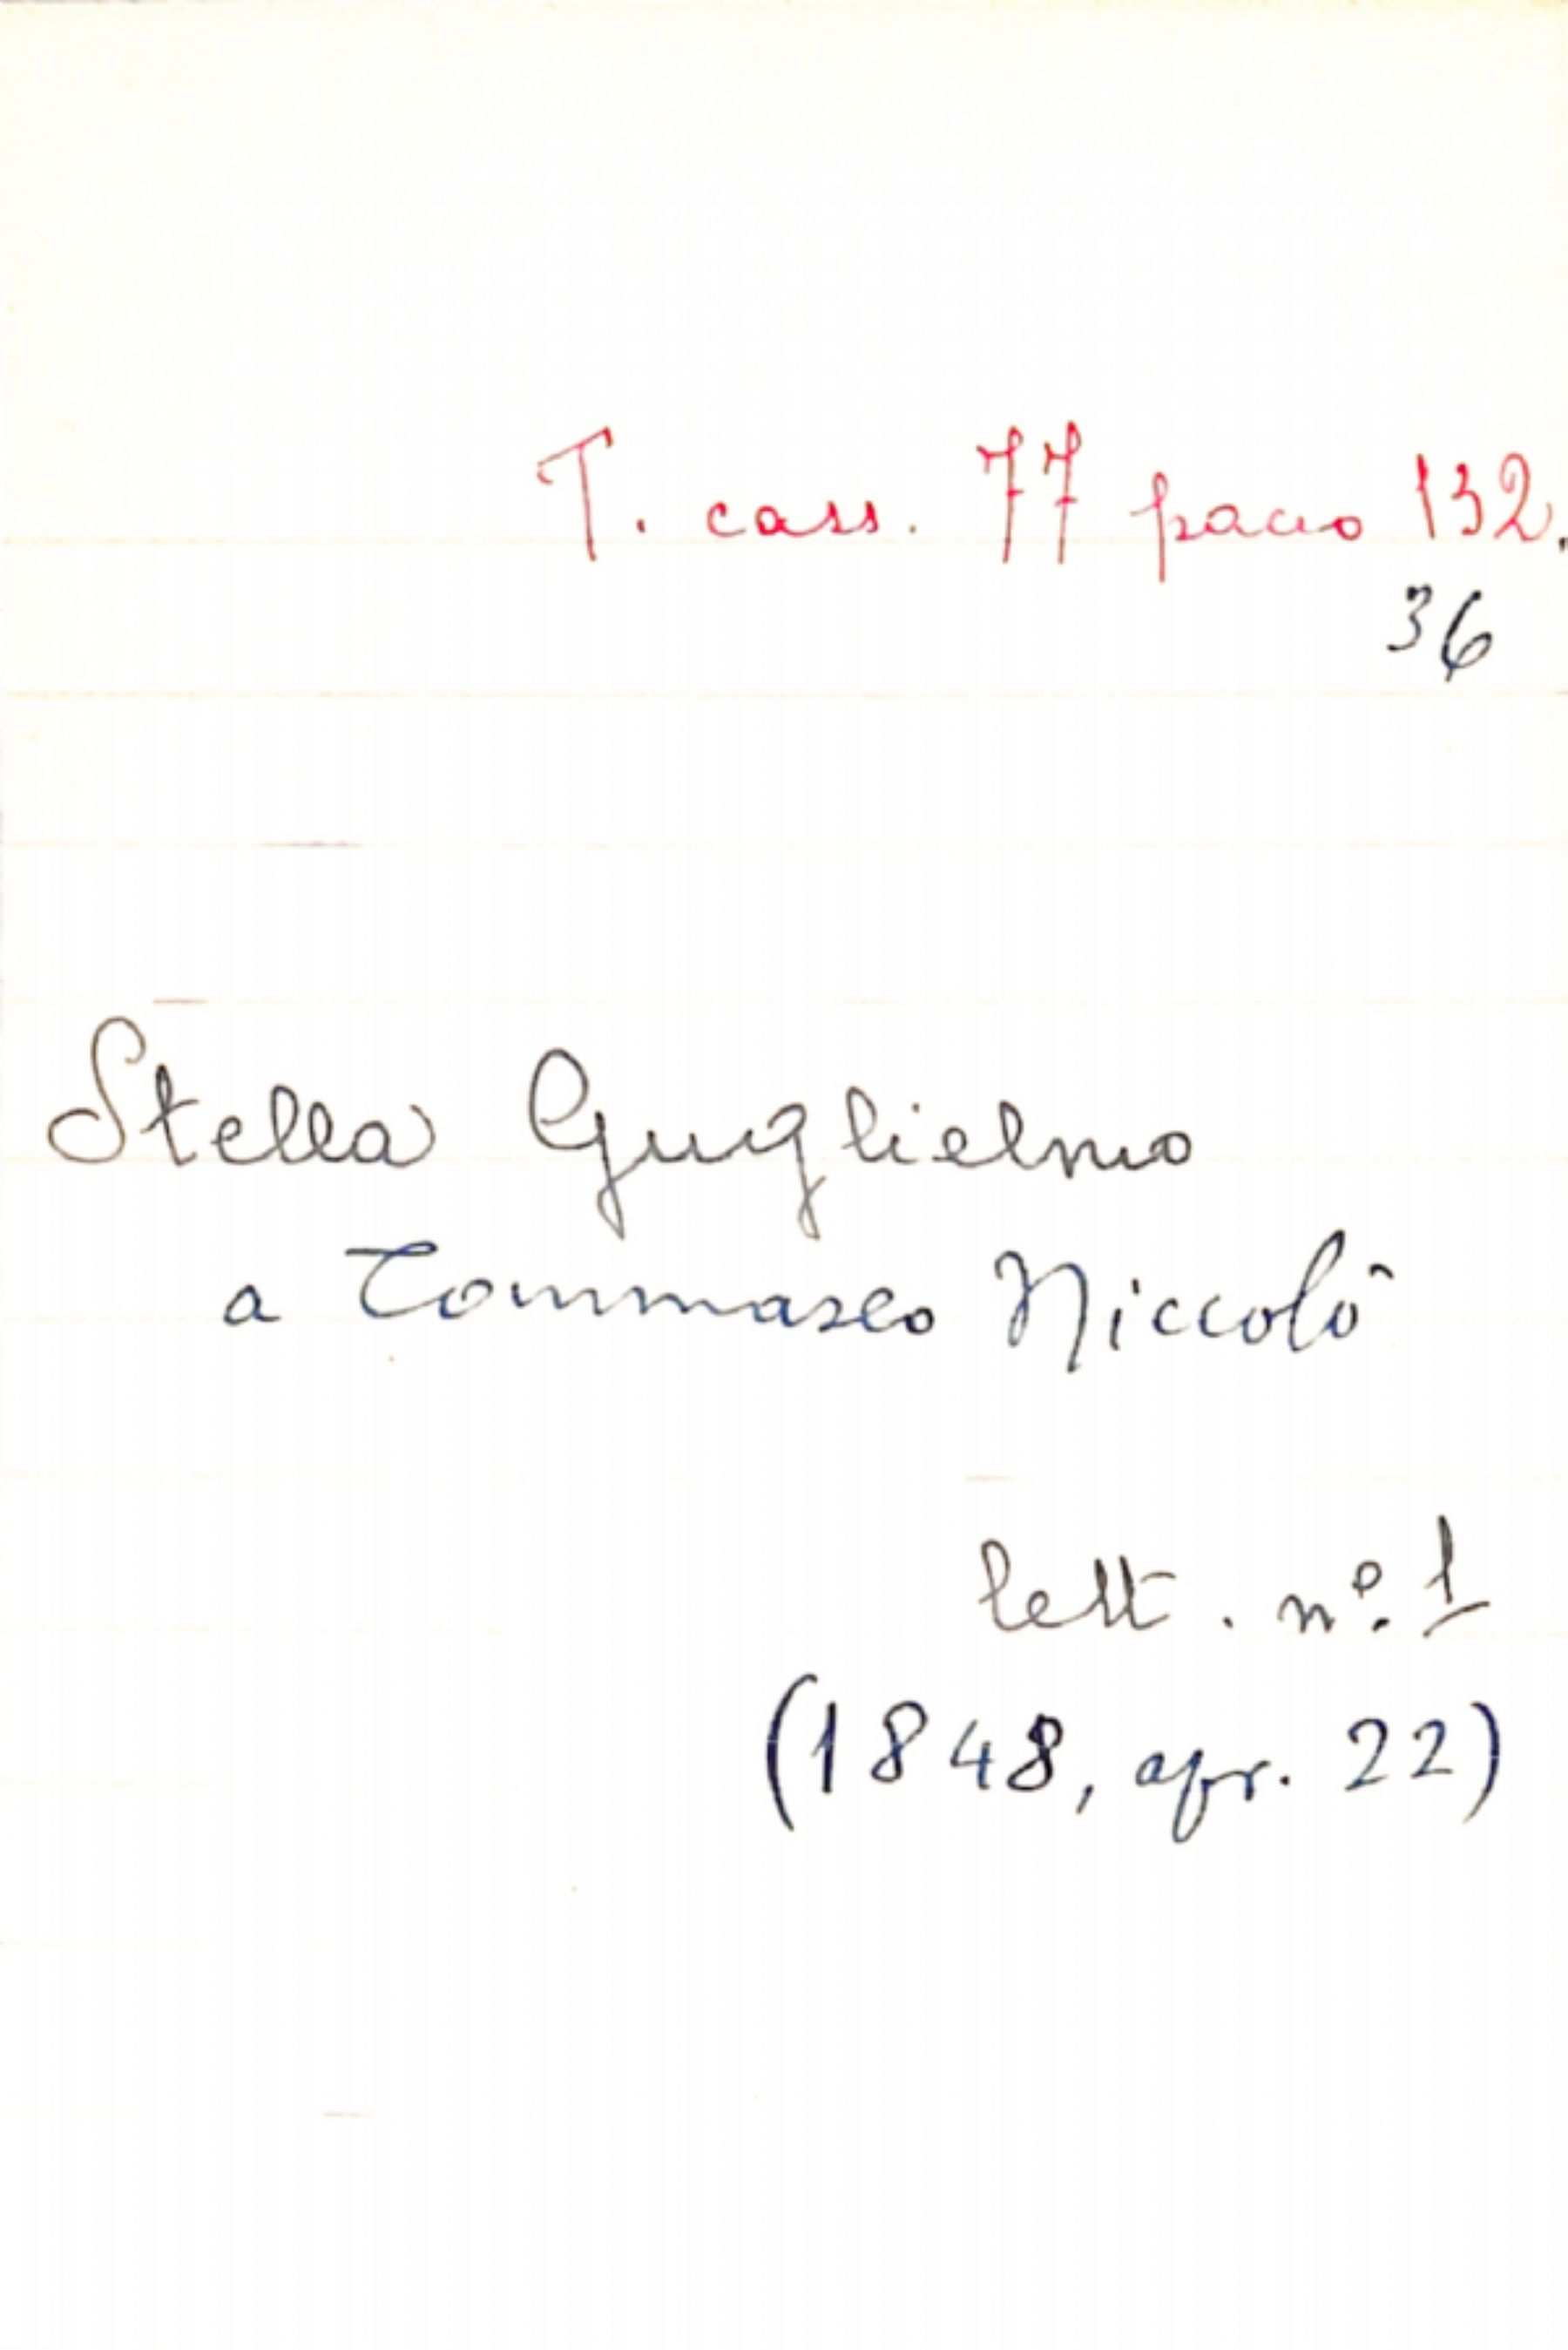 T. cass. 77 pacco 132.
36
Stella Guglielmo
a Tommaseo Niccolò
lett. nº. 1
(1848, apr. 22)